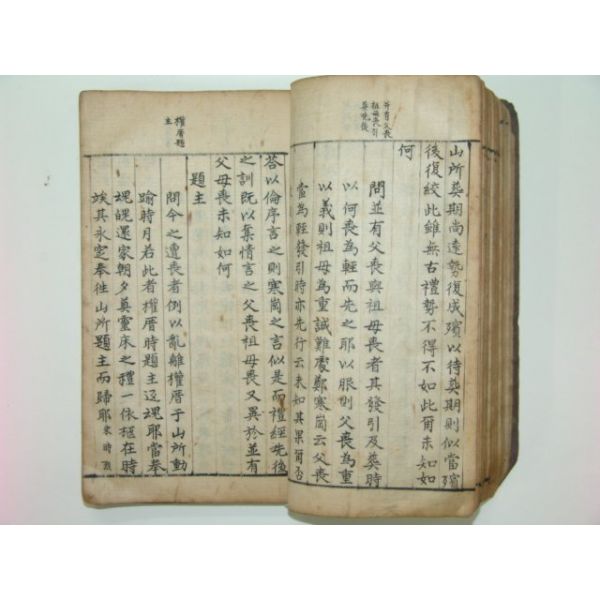 并有父喪
祖母喪引
葬先後
山所葬期尚遠勢復成殯以待葬期則似當殯
後復絞此雖無古禮勢不得不如此爾未知如
何
問並有父喪與祖母喪者其發引及葬時
以何喪為輕而先之耶以服則父喪為重
以義則祖母為重誠難處鄭寒岡云父喪
當為輕發引時亦先行云未知其果爾否
答以倫序言之則寒岡之言似是而禮經先後
之訓既以奪情言之父喪祖母喪又異於並有
父母喪未知如何
權厝題
主
題主
問今之遭喪者例以亂離權厝于山所動
踰時月若此者權厝時題主返魂耶當奉
魂魄還家朝夕奠靈床之禮一依柩在時
俟其永窆奉往山所題主而歸耶